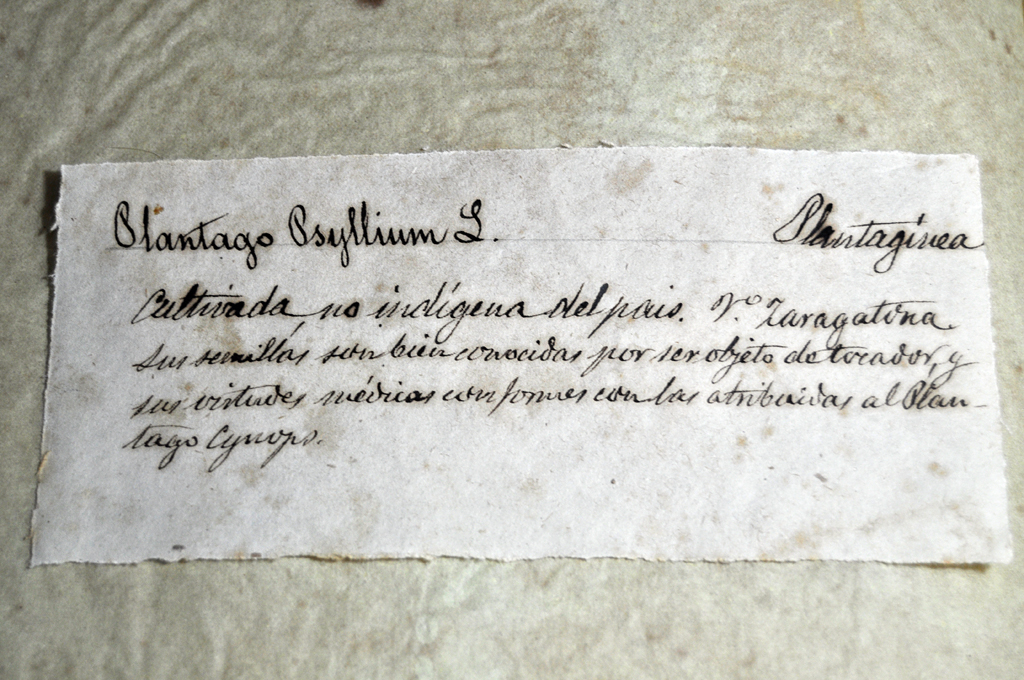 Plantago Psyllium L. Plantaginea
Cultivada no indígena del pais. V.º Zaragatona.
Sus semillas son bien conocidas por ser objeto de tocador, y
sus virtudes médicas conformes con las atribuidas al Plan-
tago Cynops.